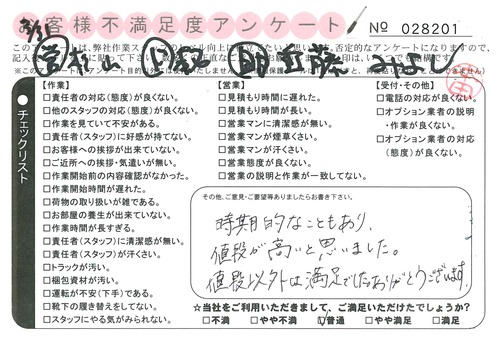 お客様不満足度アンケート
No 028201
【作業】
□責任者の対応(態度)が良くない。
□他のスタッフの対応(態度)が良くない。
□作業を見ていて不安がある。
□責任者(スタッフ)に好感が持てない。
□お客様への挨拶が出来ていない。
□ご近所への挨拶・気遣いが無い。
□作業開始前の内容確認がなかった。
□作業開始時間が遅れた。
□荷物の取り扱いが雑である。
□お部屋の養生が出来ていない。
□作業時間が長すぎる。
□責任者(スタッフ)に清潔感が無い。
□責任者(スタッフ)が汗くさい。
□トラックが汚い。
□梱包資材が汚い。
□運転が不安(下手)である。
□靴下の履き替えをしてない。
□スタッフにやる気がみられない。
チェックリスト
【営業】
□見積もり時間に遅れた。
□見積もり時間が長い。
□営業マンに清潔感が無い。
□営業マンが煙草くさい。
□営業マンが汗くさい。
□営業態度が良くない。
□営業の説明と作業が一致してない。
【受付・その他】
□電話の対応が良くない。
□オプション業者の説明
・作業が良くない。
□オプション業者の対応
(態度)が良くない。
その他、ご意見・ご要望等ありましたらお書き下さい。
時期的なこともあり、
値段が高いと思いました。
値段以外は満足でしたありがとうございます。
☆当社をご利用いただきまして、ご満足いただけたでしょうか?
□不満 □やや不満 □普通 □やや満足 □満足